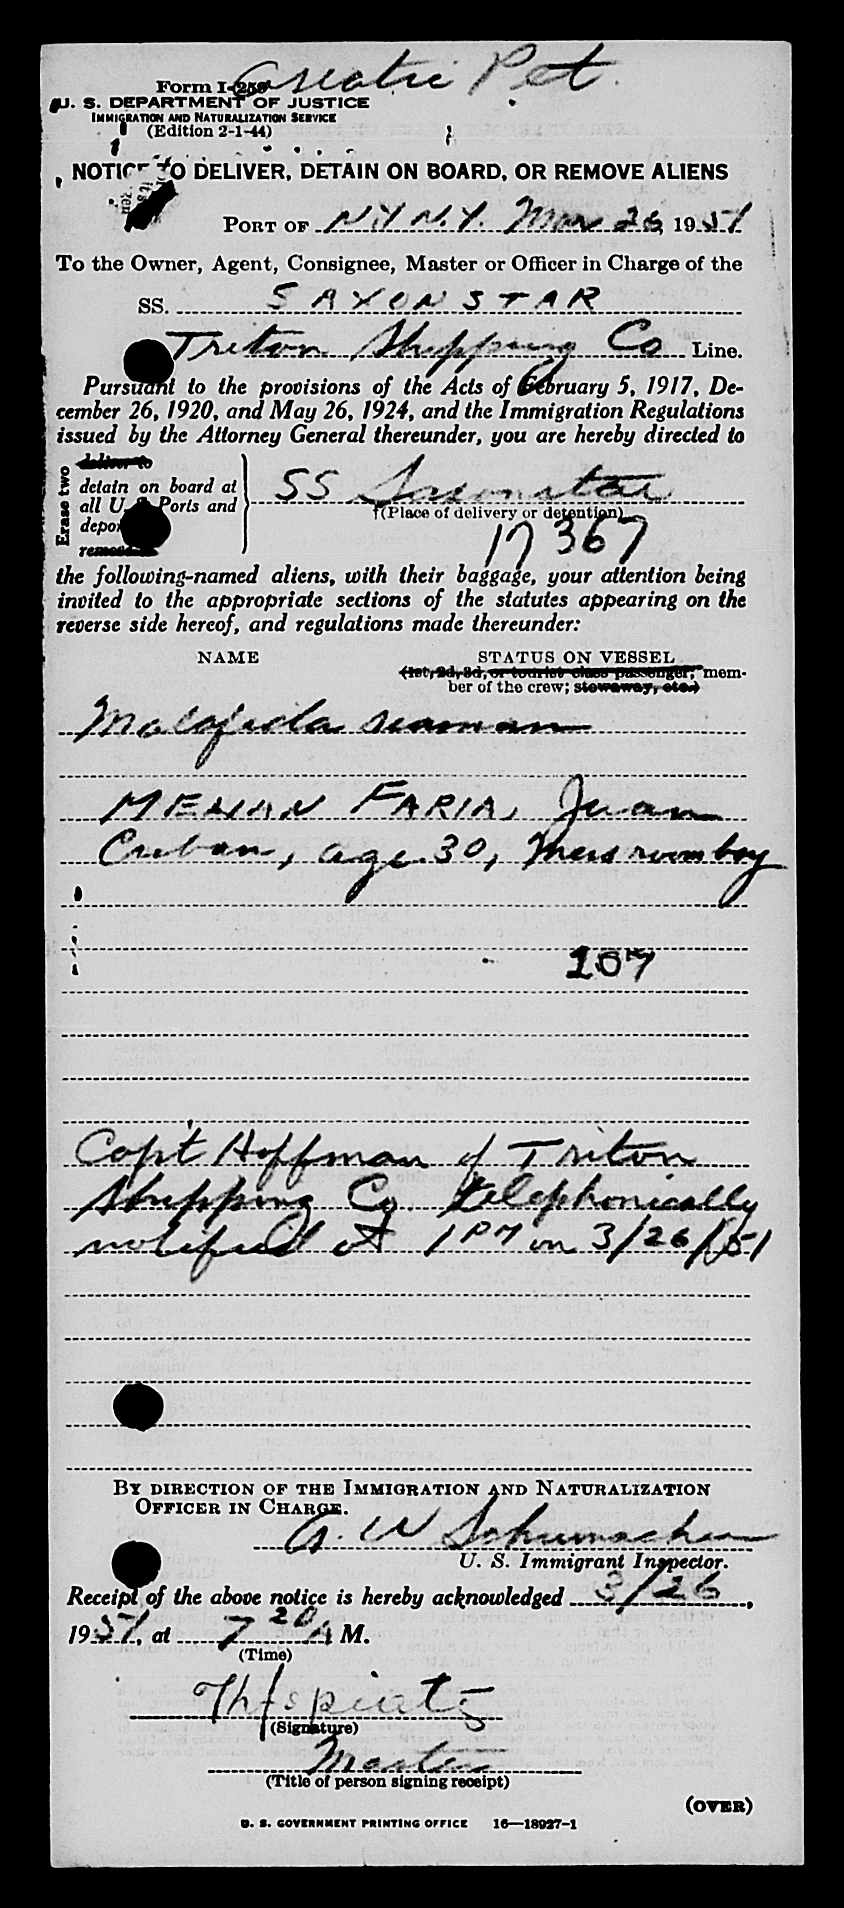 Asiatic Pet.
Form I-259
U. S. DEPARTMENT OF JUSTICE
IMMIGRATION AND NATURALIZATION SERVICE
(Edition 2-1-44)
NOTICE TO DELIVER, DETAIN ON BOARD, OR REMOVE ALIENS
PORT OF NY N.Y. Mar 26, 1951
To the Owner, Agent, Consignee, Master or Officer in Charge of the
SS. SAXONSTAR
Triton Shipping Co Line.
Pursuant to the provisions of the Acts of February 5, 1917, De-
cember 26, 1920, and May 26, 1924, and the Immigration Regulations
issued by the Attorney General thereunder, you are hereby directed to
Erase two
deliver to
detain on board at
all U. S. Ports and
depor
remove
SS Saxonstar
†(Place of delivery or detention)
17367
the following-named aliens, with their baggage, your attention being
invited to the appropriate sections of the statutes appearing on the
reverse side hereof, and regulations made thereunder:
NAME STATUS ON VESSEL
(1st, 2d, 3d, or tourist class passenger; mem-
ber of the crew; stowaway, etc.)
Malafide seaman
FARIA, Juan
Cuban, age 30, Mess room boy
107
Capt Hoffman of Triton
Shipping Co. telephonically
notified at 1 PM on 3/26/51
BY DIRECTION OF THE IMMIGRATION AND NATURALIZATION
OFFICER IN CHARGE.
A. W Schumacher
U. S. Immigrant Inspector.
Receipt of the above notice is hereby acknowledged 3/26,
1951, at 7 20 A M.
(Time)
(Signature)
Master
(Title of person signing receipt)
(OVER)
U. S. GOVERNMENT PRINTING OFFICE 16—18927-1